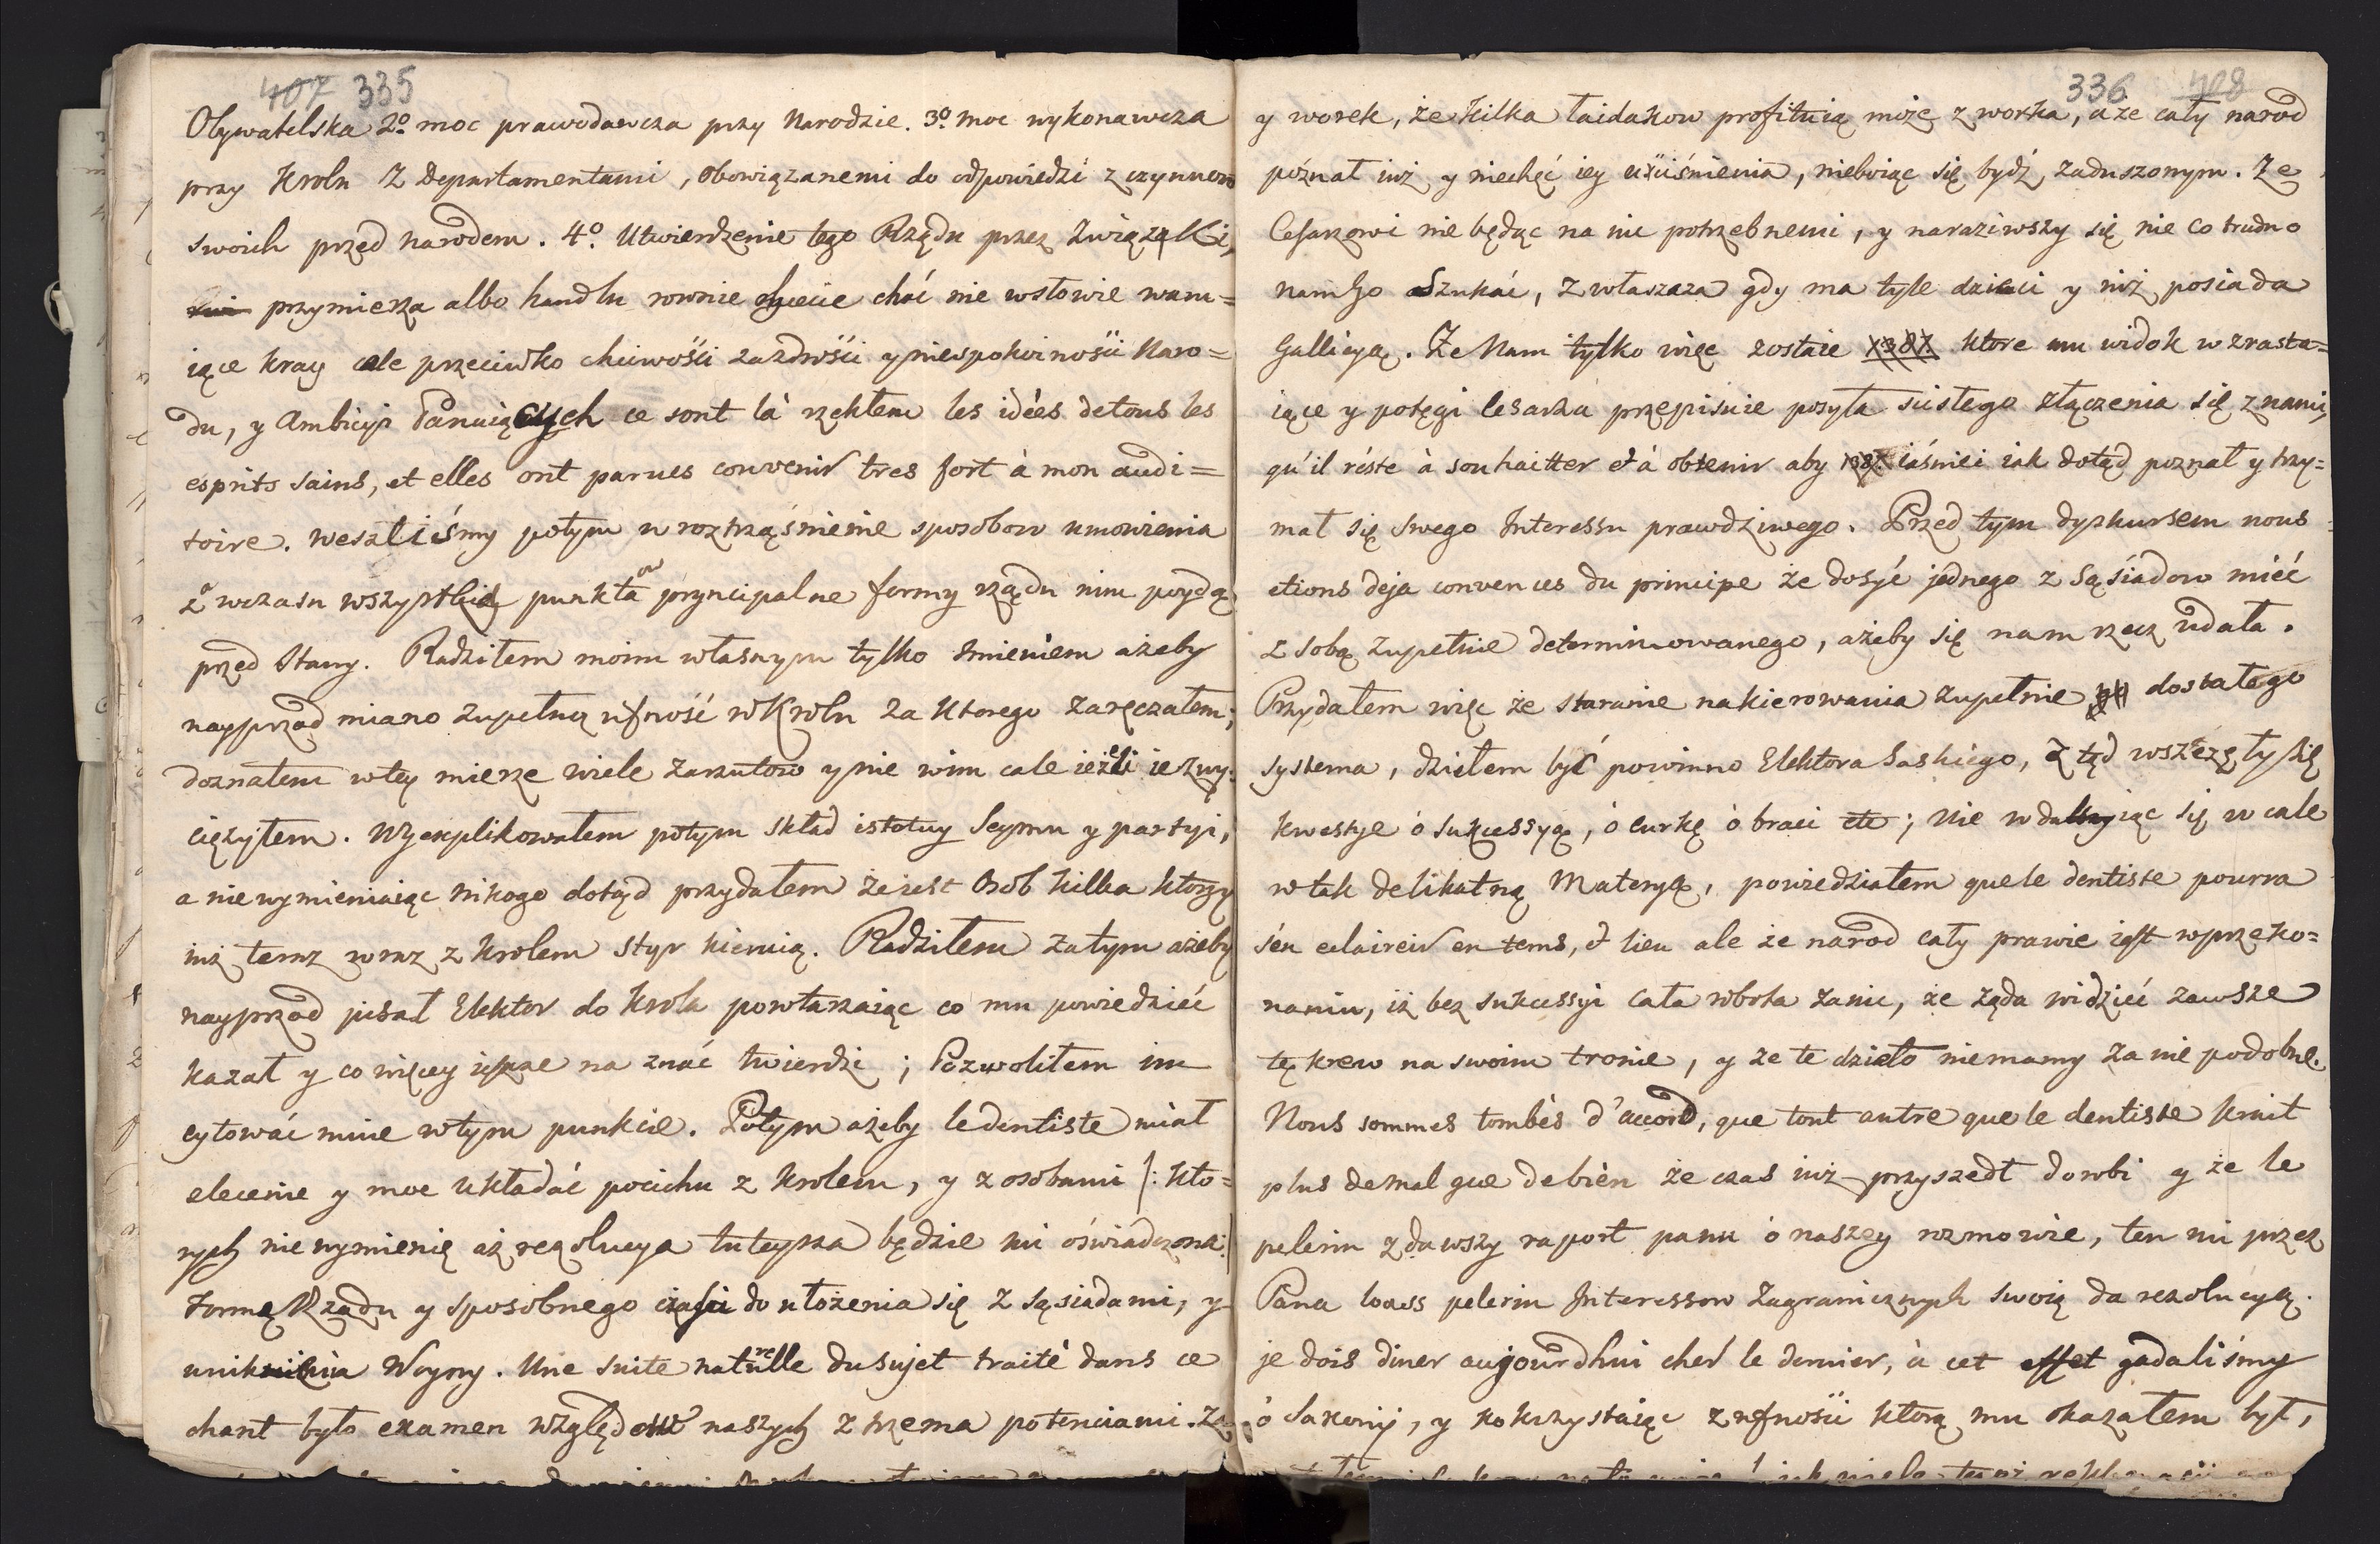 407 335
Obywatelska 2o moc prawodawcza przy Narodzie. 3o moc wykonawcza
przy Krolu z Departamentami, obowiązanemi do odpowiedzi z czynnow
swoich przed narodem. 4o. Utwierdzenie tego Rządu przez Związki,
przymierza albo handlu rownie choć nie wstowie waru=
iące kray cale przeciwko chciwości zazdrości y niespokoiności Naro=
du, y Ambicyi Panuiących ce sont là rzekłem les idées de tous les
esprits sains, et elles ont parues convenir tres fort à mon audi=
toire. Weszliśmy potym w roztrząśnienie sposobow umowienia
z wczasu wszystkich punktaow pryncipalne formy rządu nim poydą
przed Stany. Radziłem moim własnym tylko Imieniem ażeby
nayprzod miano zupełną ufność w Krolu za ktorego zaręczałem;
doznałem w tey mierze wiele zarzutow y nie wim cale ieżeli ie zwy=
ciężyłem. Wyexplikowałem potym skład istotny Seymu y partyi,
a nie wymieniaiąc nikogo dotąd przydałem że iest Osob kilka ktorzy
iuż teraz wraz z Krolem styr kieruią. Radziłem zatym ażeby
nayprzod pisał Elektor do Krola powtarzaiąc co mu powiedzieć
kazał y co więcey ieszcze na znać twierdzi; Pozwoliłem im
cytować mnie w tym punkcie. Potym ażeby le dentiste miał
elecenie y moc układać pocichu z Krolem, y z osobami /: kto=
rych nie wymienię aż rezolucya tuteysza będzie mi oświadczona:/
Formę Rządu y sposobnego części do ułożenia się z sąsiadami, y
uniknienia Woyny. Une suite naturelle du sujet traité dans ce
chant było examen względow naszych z trzema potenciami. Ze
336 408
y worek, że kilka łaidakow profituią może z worka, a że cały narod
poznał iuż y niechęć iey uiściśnienia, nieboiąc się bydź zaduszonym. Ze
Cesarzowi nie będąc na nic potrzebnemi, y naraziwszy się nie co trudno
nam Go szukać, zwłaszcza gdy ma tyle dzieci y iuż posiada
Gallicyą. Ze Nam tylko więc zostaie ktore mu widok wzrasta=
iące y potęgi Cesarza przepisuie pozyta sistego złączenia się z nami,
qu'il réste à souhaitter et à obtenir aby iaśniei iak dotąd poznał y trzy=
mał się swego Interessu prawdziwego. Przed tym dyskursem nous
etions deja convences du principe że dosyć jednego z Sąsiadow mieć
z sobą zupełnie determinowanego, ażeby się nam rzecz udała.
Przydałem więc że staranie nakierowania zupełnie dostałego
systema, dziełem być powinno Elektora Saskiego, z tąd wszczęły się
kwestye ó sukcessyą, ó curkę ó braci etc; nie wdaiąc się w cale
w tak delikatną Materyą, powiedziałem que le dentiste pourra
s'en eclaircir en tems, et lieu ale że narod cały prawie iest w przeko=
naniu, iż bez sukcessyi cała robota zanic, że żąda widzieć zawsze
tę krew na swoim tronie, y że te dzieło niemamy za nie podobne.
Nous sommes tombés d'accord, que tout autre que le dentiste feroit
plus de mal que de bien że czas iuż przyszedł dorobi y że le
pelerin zdawszy raport panu ó naszey rozmowie, ten mi przez
Pana Loess pelerin Interessow Zagranicznych swoią da rezolucyą.
je dois diner aujourdhui chés le dernier, à cet effet gadaliśmy
ó Saxonij, y korzystaiąc z ufności ktorą mu okazałem był,